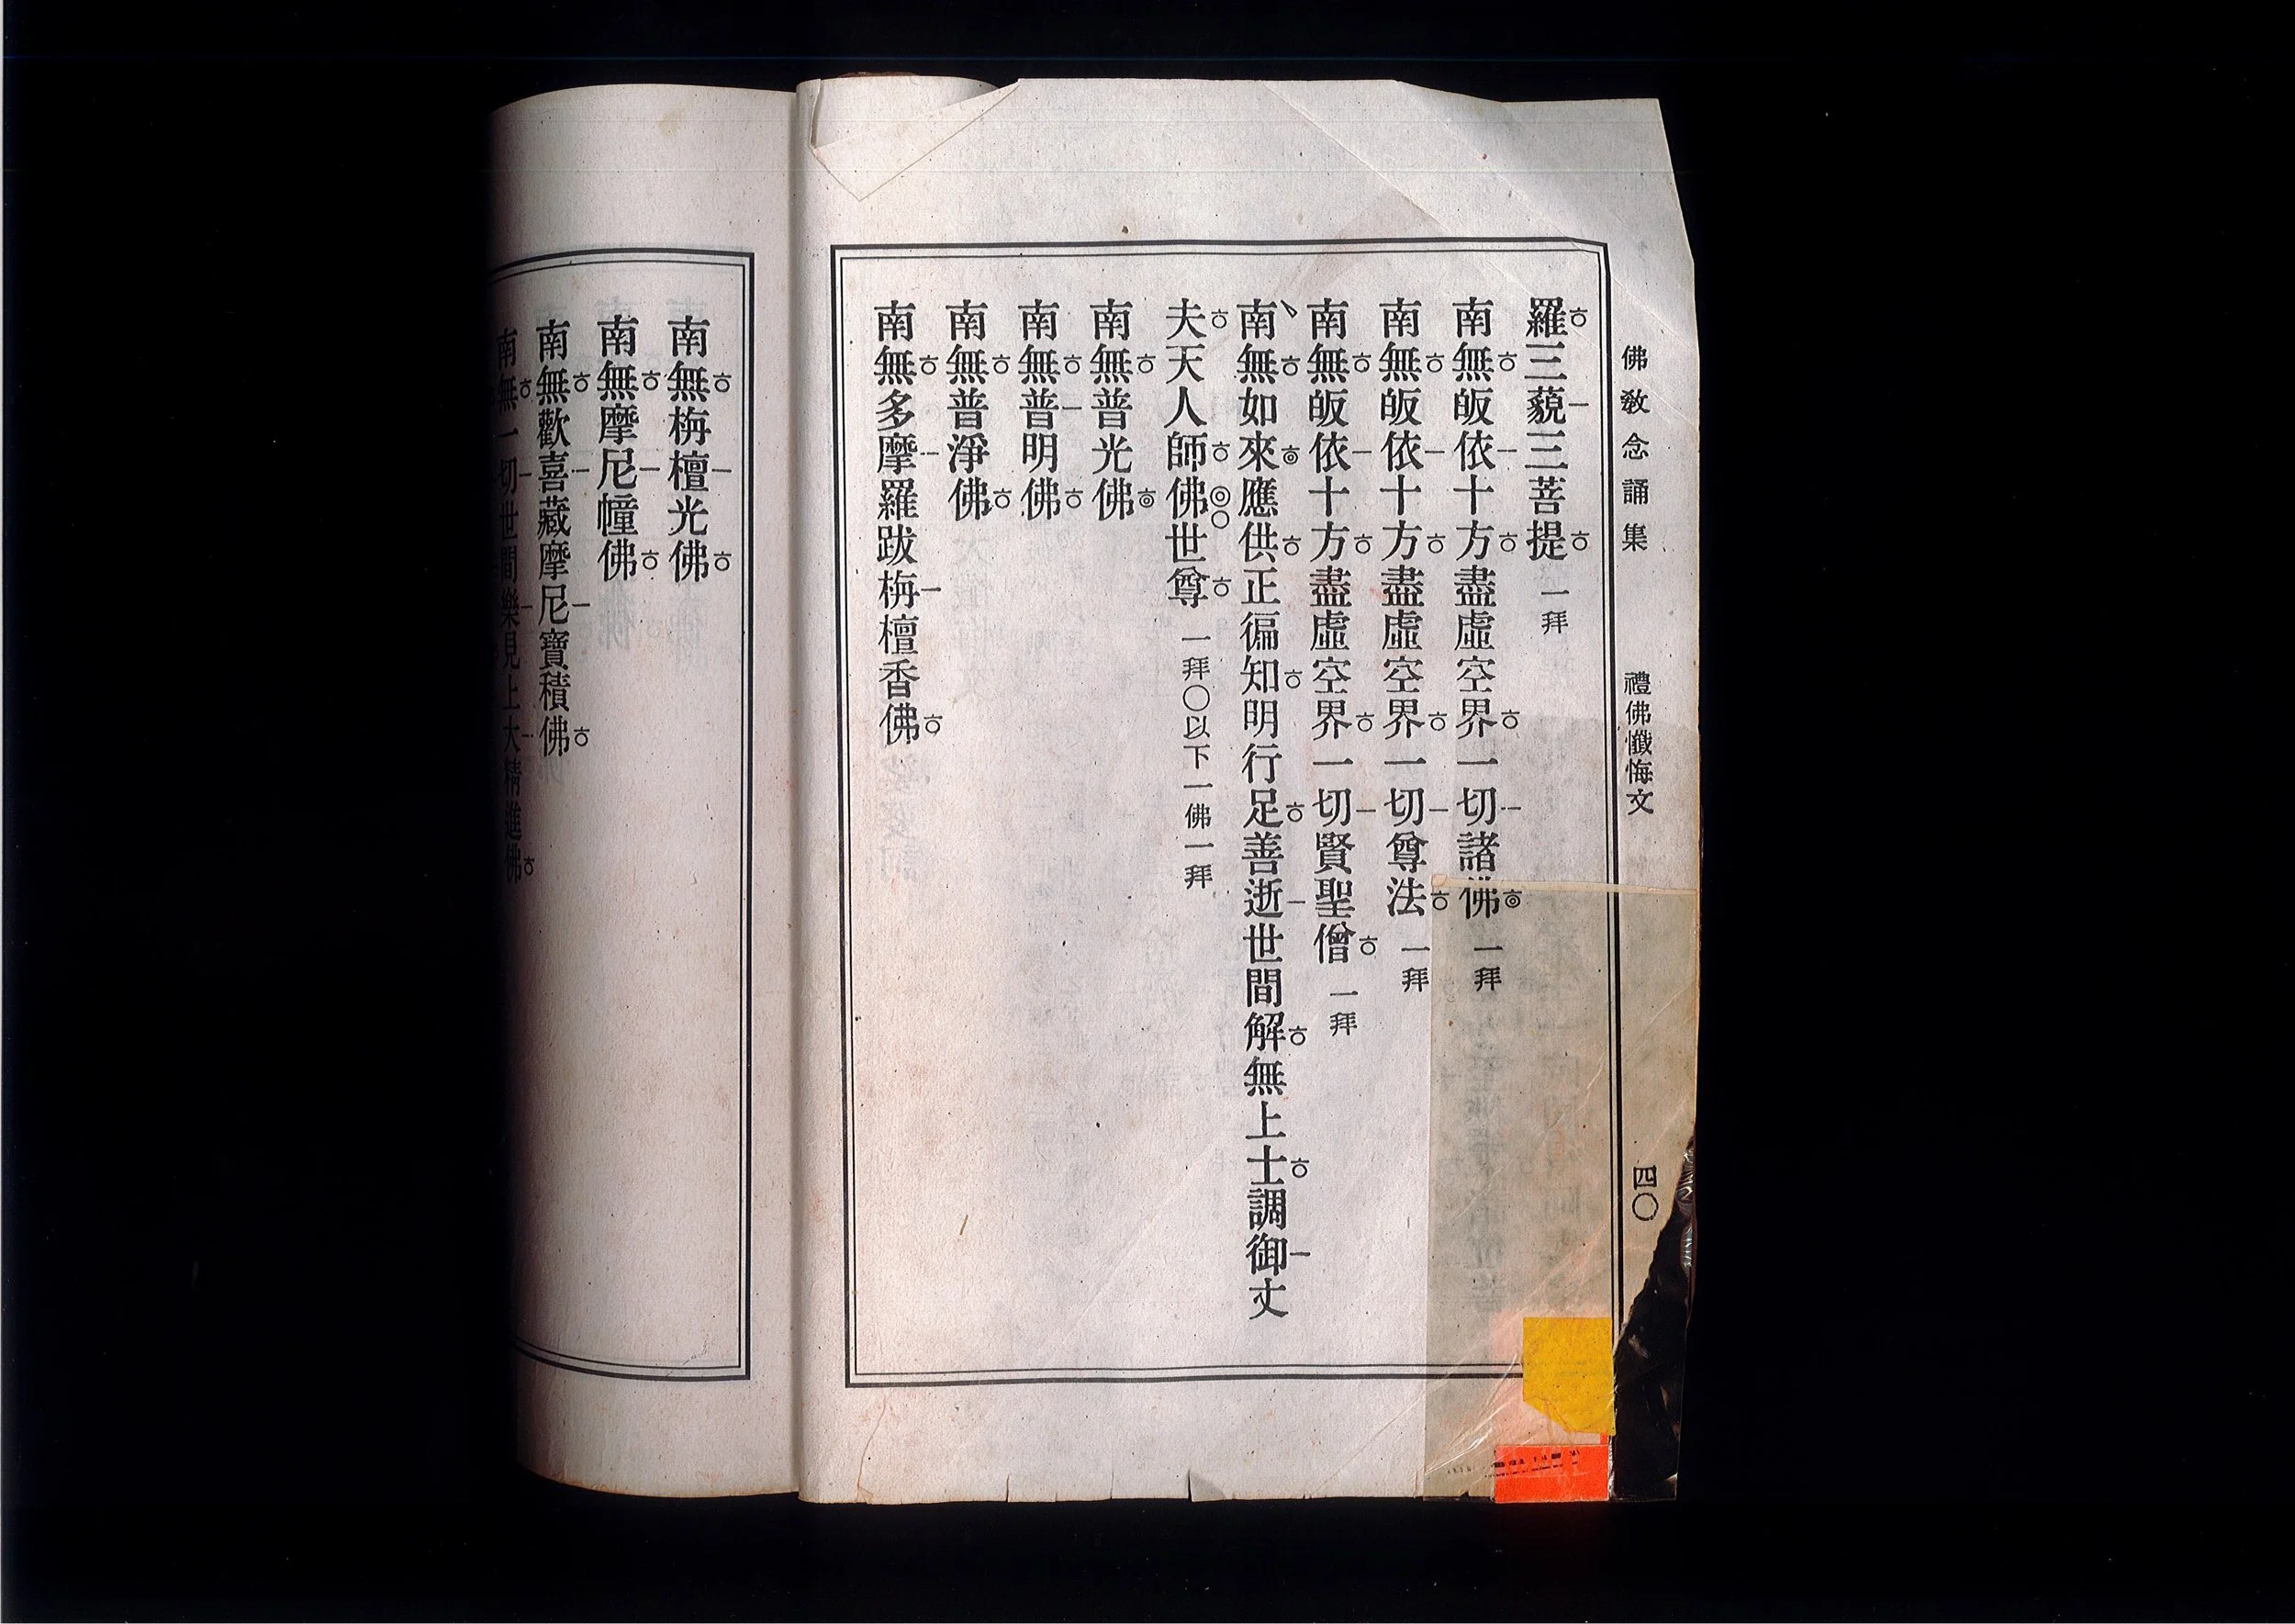 佛教念誦集 禮佛懺悔文 四〇
羅三藐三菩提 一拜
南無皈依十方盡虛空界一切諸佛 一拜
南無皈依十方盡虛空界一切尊法 一拜
南無皈依十方盡虛空界一切賢聖僧 一拜
南無如來應供正徧知明行足善逝世間解無上士調御丈
夫天人師佛世尊 一拜〇以下一佛一拜
南無普光佛
南無普明佛
南無普淨佛
南無多摩羅跋栴檀香佛
南無栴檀光佛
南無摩尼幢佛
南無歡喜藏摩尼寶積佛
南無一切世間樂見上大精進佛